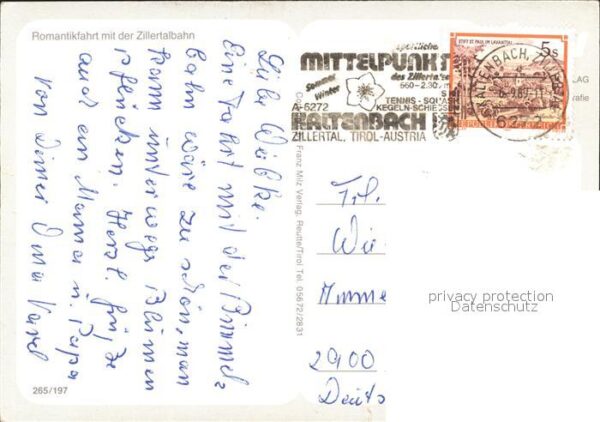 Romantikfahrt mit der Zillertalbahn
Liebe Wiebke.
Eine Fahrt mit der Bimmel=
bahn wäre zu schön, man
kann unterwegs Blumen
pflücken. Herzl. Grüße
auch an Mama u. Papa
von Deiner Oma
265/197
Franz Milz Verlag, Reutte/Tirol Tel. 05672/2831
sportlicher
MITTELPUNKT
des Zillertales
Sommer
Winter
560-2.30
A-6272
TENNIS - SQUA
KEGELN-SCHIES
KALTENBACH
ZILLERTAL, TIROL-AUSTRIA
STIFT ST. PAUL IM LAVANTTAL
5 S
KALTENBACH, ZILLERTAL
6272
LAG
rafie
Frl.
Wie
Ammer
2900
Deuts
privacy protection
Datenschutz